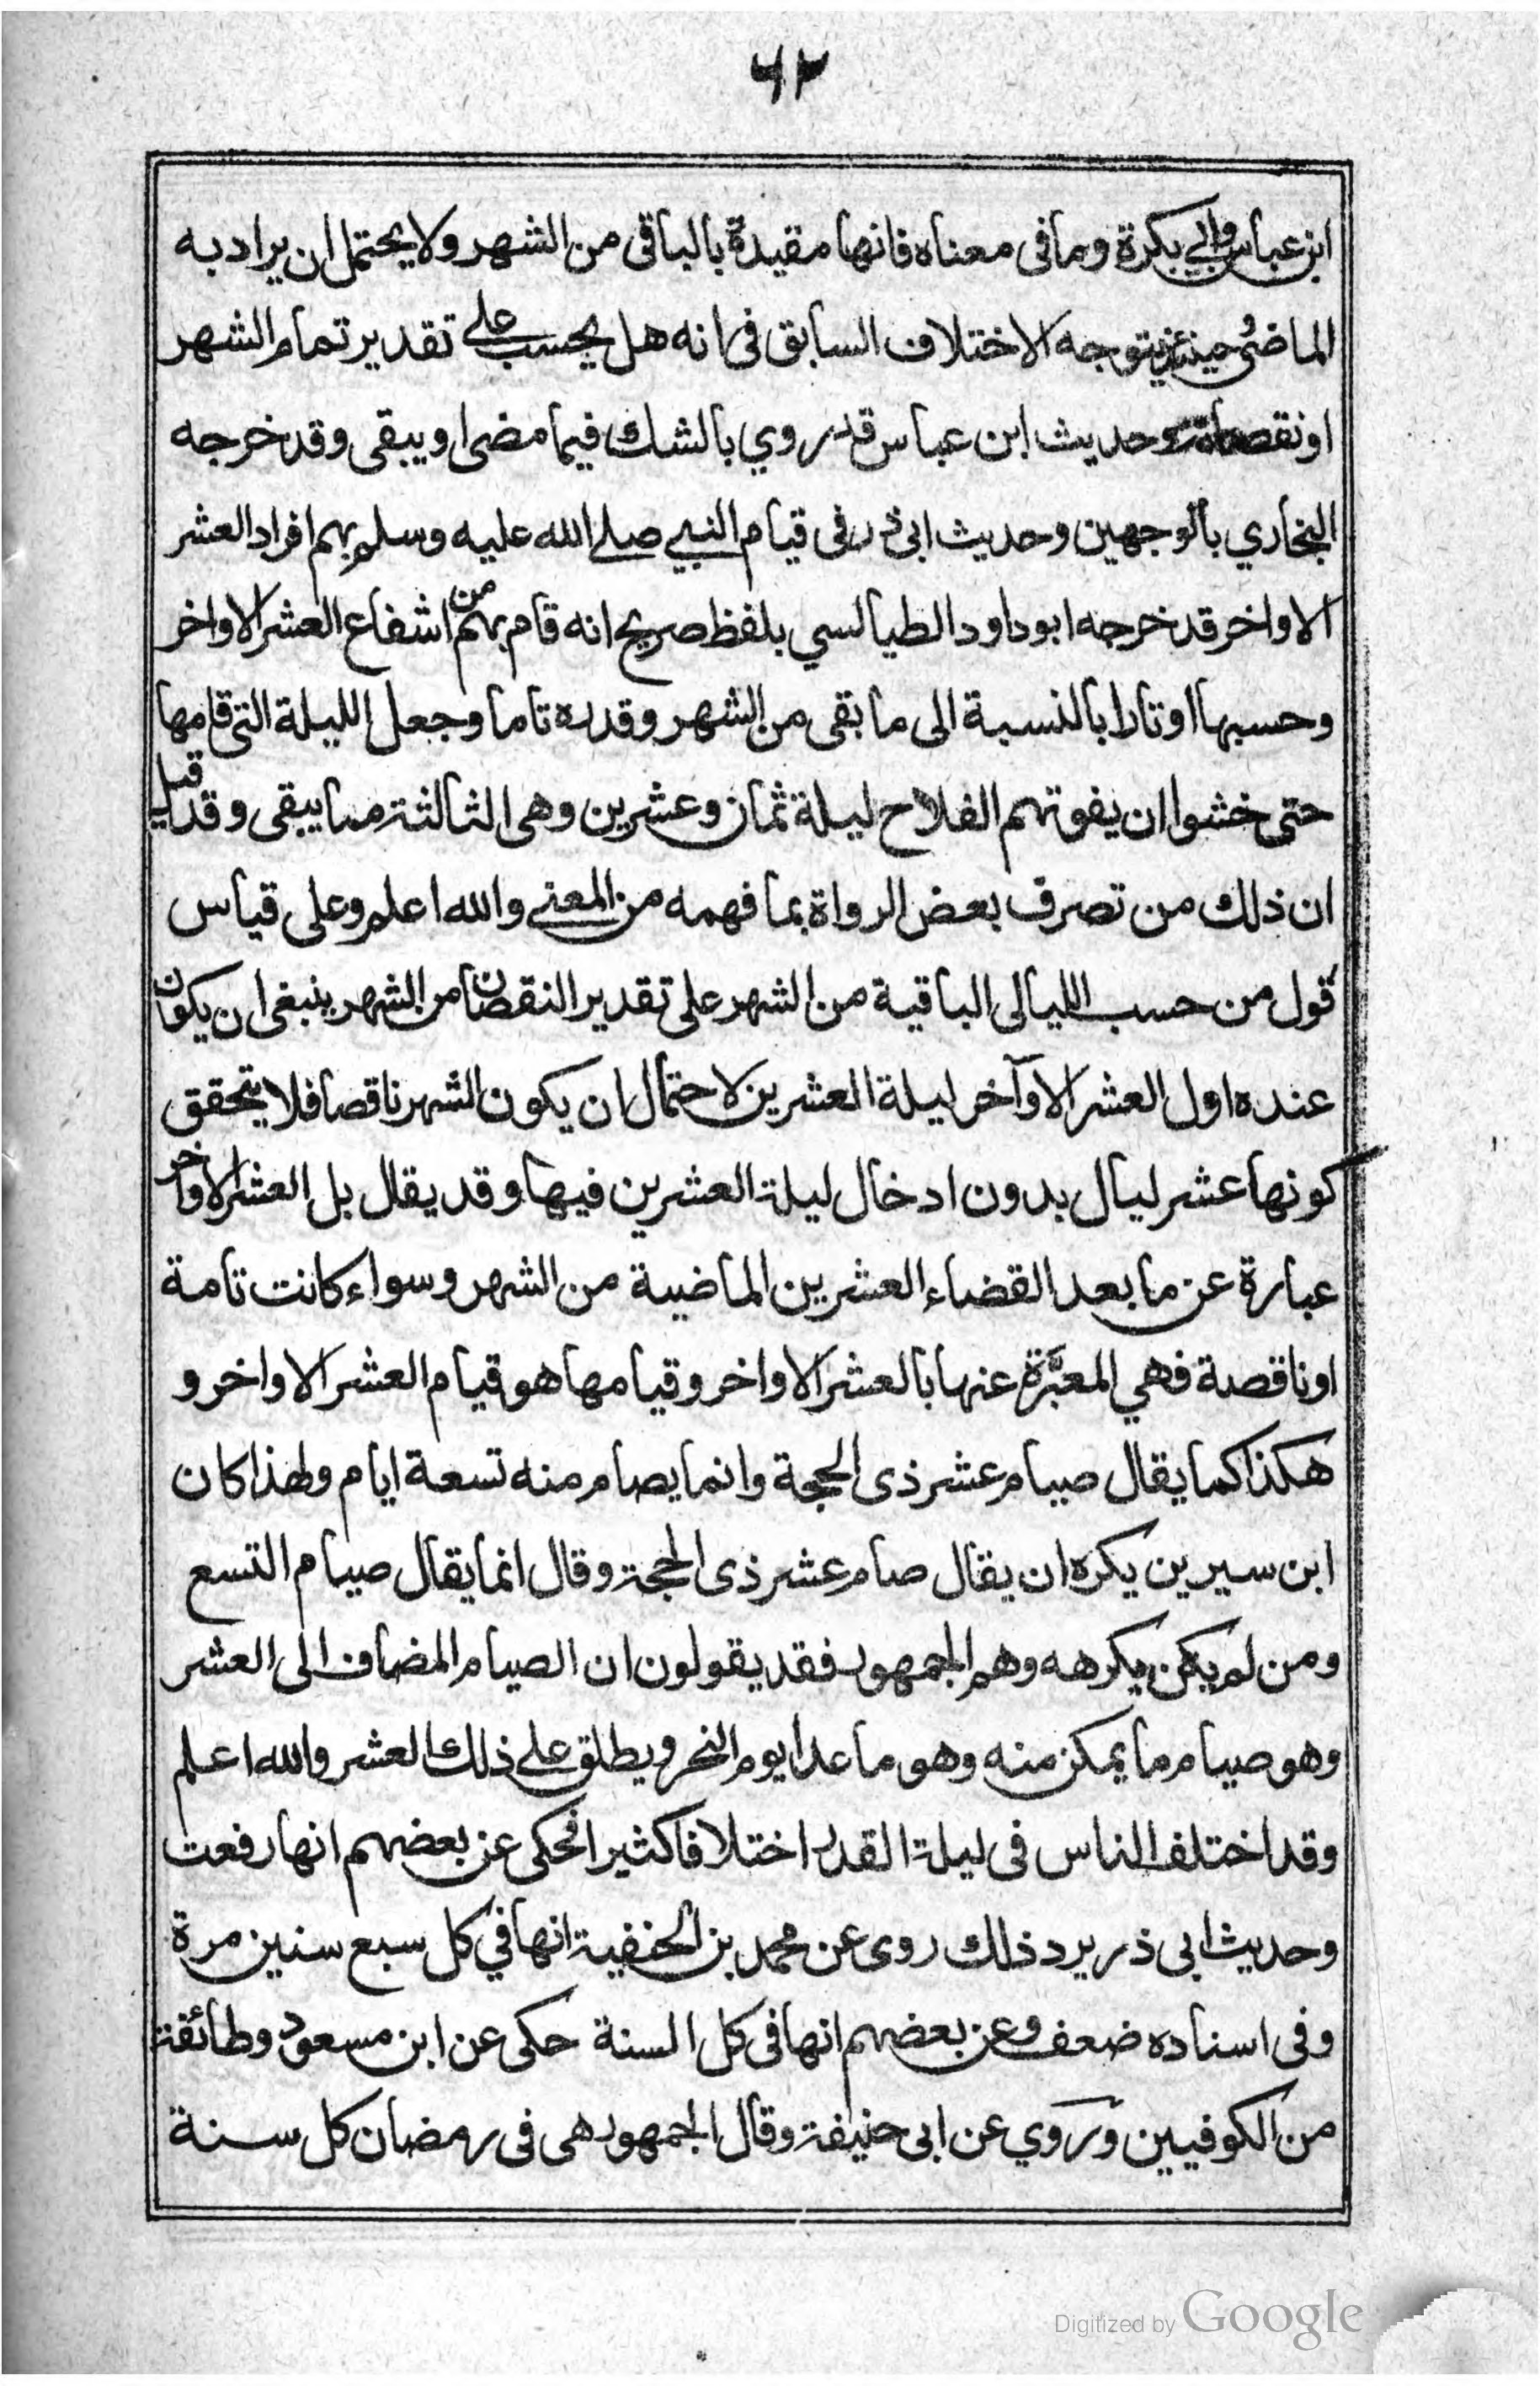 ٦٢
ابن عباس وابي بكرة وما فى معناه فانها مقيدة بالباقى من الشهر ولا يحتمل ان يراد به
الماضي حينئذ يتوجه الاختلاف السابق فى انه هل يحسب على تقدير تمام الشهر
او نقصانه وحديث ابن عباس قد روي بالشك فيما مضى او يبقى وقد خرجه
البخاري بالوجهين وحديث ابى ذر فى قيام النبي صلى الله عليه وسلم بهم افراد العشر
الاواخر قد خرجه ابو داود الطيالسي بلفظ صريح انه قام بهم من اشفاع العشر الاواخر
وحسبها اوتارا بالنسبة الى ما بقى من الشهر وقدره تاما وجعل الليلة التى قامها
حتى خشوا ان يفوتهم الفلاح ليلة ثمان وعشرين وهى الثالثة مما يبقى وقد قيل
ان ذلك من تصرف بعض الرواة بما فهمه من المعنى والله اعلم وعلى قياس
قول من حسب الليالى الباقية من الشهر على تقدير النقصان من الشهر ينبغى ان يكون
عنده اول العشر الاوآخر ليلة العشرين لاحتمال ان يكون الشهر ناقصا فلا يتحقق
كونها عشر ليال بدون ادخال ليلة العشرين فيها وقد يقال بل العشر الاواخر
عبارة عن ما بعد القضاء العشرين الماضية من الشهر وسواء كانت تامة
او ناقصة فهي المعبّرة عنها بالعشر الاواخر وقيامها هو قيام العشر الاواخر و
هكذا كما يقال صيام عشر ذى الحجة وانما يصام منه تسعة ايام ولهذا كان
ابن سيرين يكره ان يقال صام عشر ذى الحجة وقال انما يقال صيام التسع
ومن لم يكن يكرهه وهم الجمهور فقد يقولون ان الصيام المضاف الى العشر
وهو صيام ما يمكن منه وهو ما عدا يوم النحر ويطلق على ذلك العشر والله اعلم
وقد اختلف الناس فى ليلة القدر اختلافا كثيرا فحكى عن بعضهم انها رفعت
وحديث ابى ذر يرد ذلك روى عن محمد بن الحنفية انها في كل سبع سنين مرة
وفى اسناده ضعف وعن بعضهم انها فى كل السنة حكى عن ابن مسعود وطائفة
من الكوفيين وروي عن ابى حنيفة وقال الجمهور هى فى رمضان كل سنة
Digitized by Google